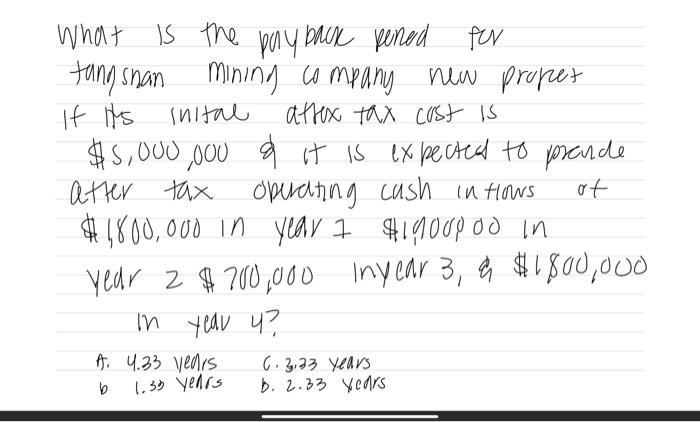 What is the payback period for
tangshan mining company new project
If its inital after tax cost is
$5,000,000 & it is expected to provide
after tax operating cash inflows of
$1,800,000 in year 1 $1,900,000 in
year 2 $700,000 in year 3, & $1,800,000
in year 4?
A. 4.33 years C. 3.33 years
b 1.33 years D. 2.33 years